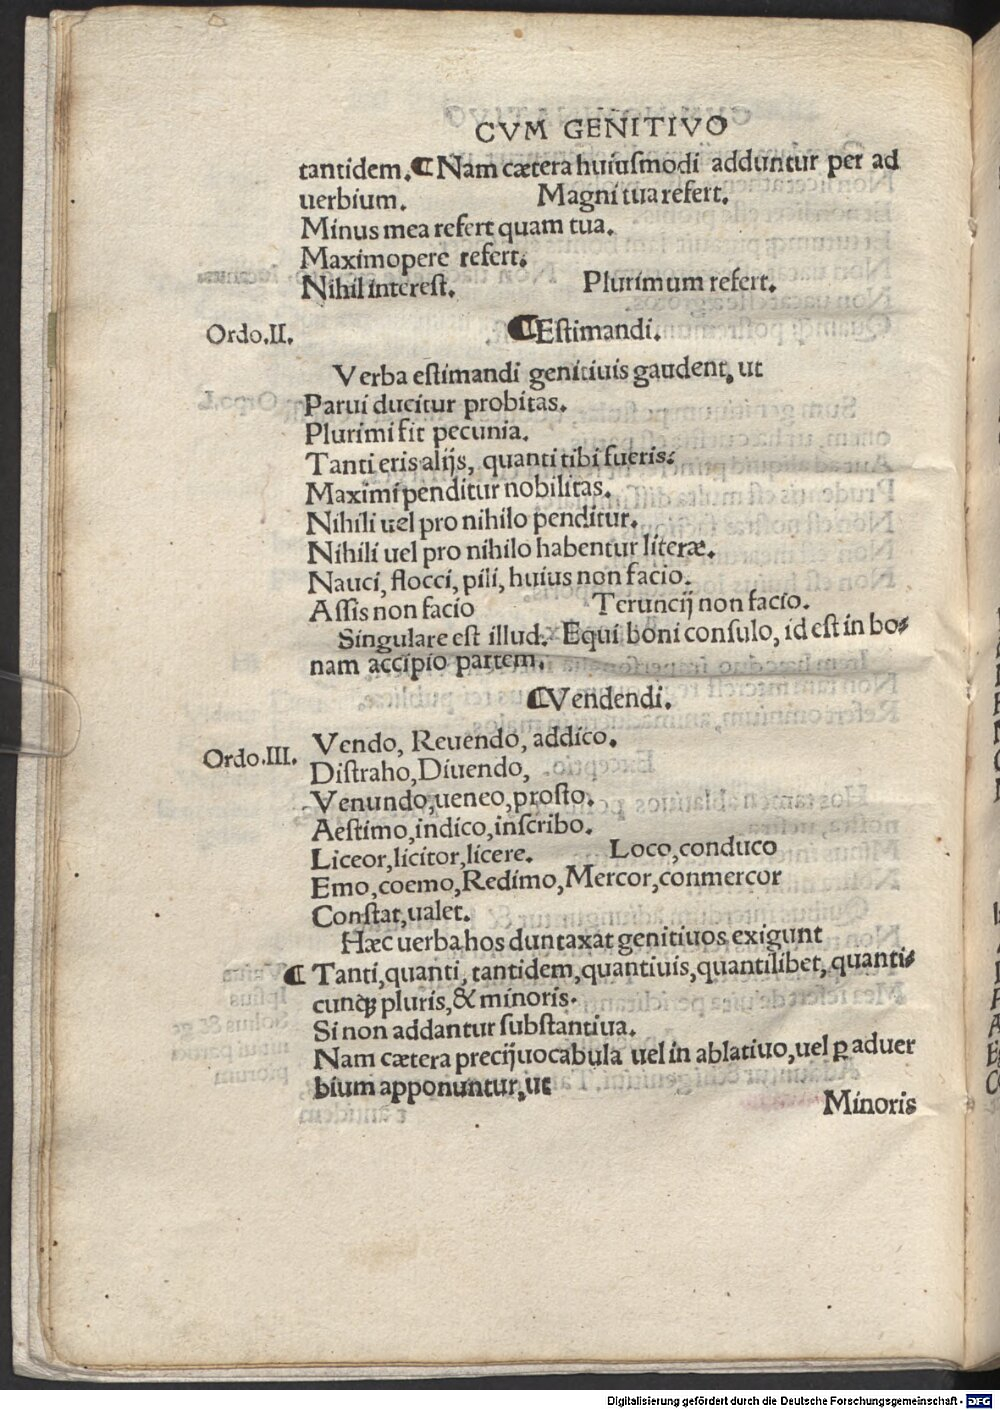 CVM GENITIVO
tantidem. ¶ Nam cætera huiuſmodi adduntur per ad
uerbium. Magni tua refert.
Minus mea refert quam tua.
Maximopere refert.
Nihil intereſt. Plurimum refert.
Ordo.II. ¶Eſtimandi.
Verba eſtimandi genitiuis gaudent, ut
Parui ducitur probitas.
Plurimi fit pecunia.
Tanti eris alijs, quanti tibi fueris:
Maximi penditur nobilitas.
Nihili uel pro nihilo penditur.
Nihili uel pro nihilo habentur literæ.
Nauci, flocci, pili, huius non facio.
Aſſis non facio Teruncij non facio.
Singulare eſt illud. Equi boni conſulo, id eſt in bo⸗
nam accipio partem.
¶Vendendi.
Ordo.III. Vendo, Reuendo, addico.
Diſtraho, Diuendo,
Venundo, ueneo, proſto.
Aeſtimo, indico, inſcribo.
Liceor, licitor, licere. Loco, conduco
Emo, coemo, Redimo, Mercor, conmercor
Conſtat, ualet.
Hæc uerba hos duntaxat genitiuos exigunt
¶ Tanti, quanti, tantidem, quantiuis, quantilibet, quanti⸗
cunqꝫ pluris, & minoris.
Si non addantur ſubſtantiua.
Nam cætera precij uocabula uel in ablatiuo, uel ꝑ aduer
bium apponuntur, ut
Minoris
Digitalisierung gefördert durch die Deutsche Forschungsgemeinschaft - DFG